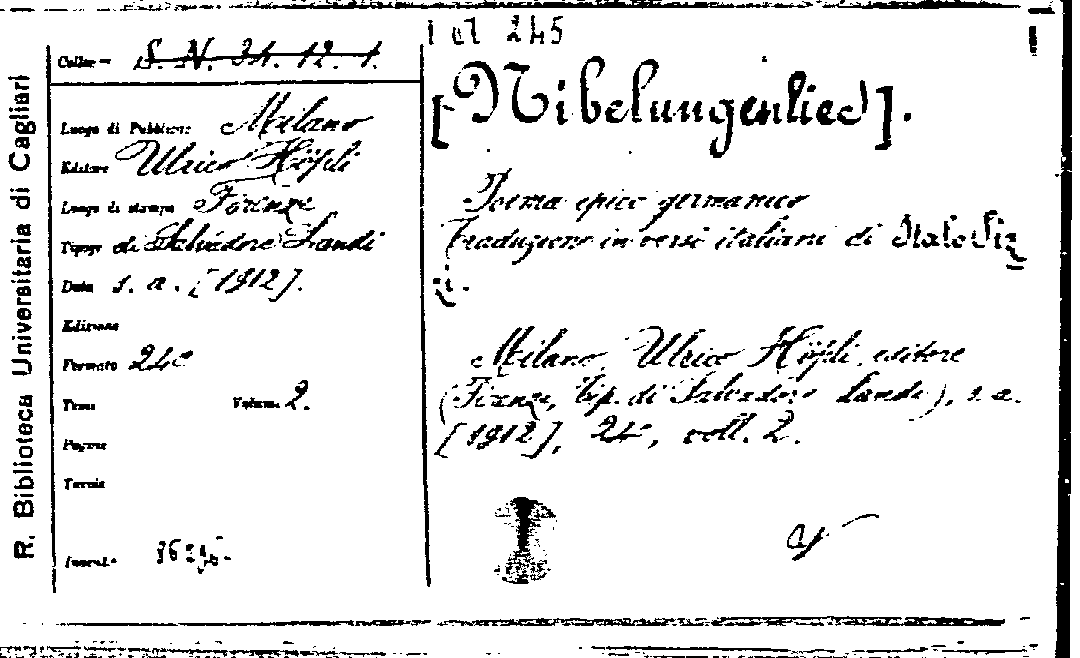 R. Biblioteca Universitaria di Cagliari
Colloc.— S. N. 34. 12. 1.
Luogo di Pubblicaz. Milano
Editore Ulrico Höpli
Luogo di stampa Firenze
Tipogr. di Salvadore Landi
Data s. a. [1912].
Edizione
Formato 24º
Tomi Volumi 2.
Pagine
Tavole
Inocul.
245
[Nibelungenlied].
Poema epico germanico
Traduzione in versi italiani di Italo Piz
zi.
Milano, Ulrico Höpli, editore
(Firenze, tip. di Salvadore Landi), s. a.
[1912], 24º, voll. 2.